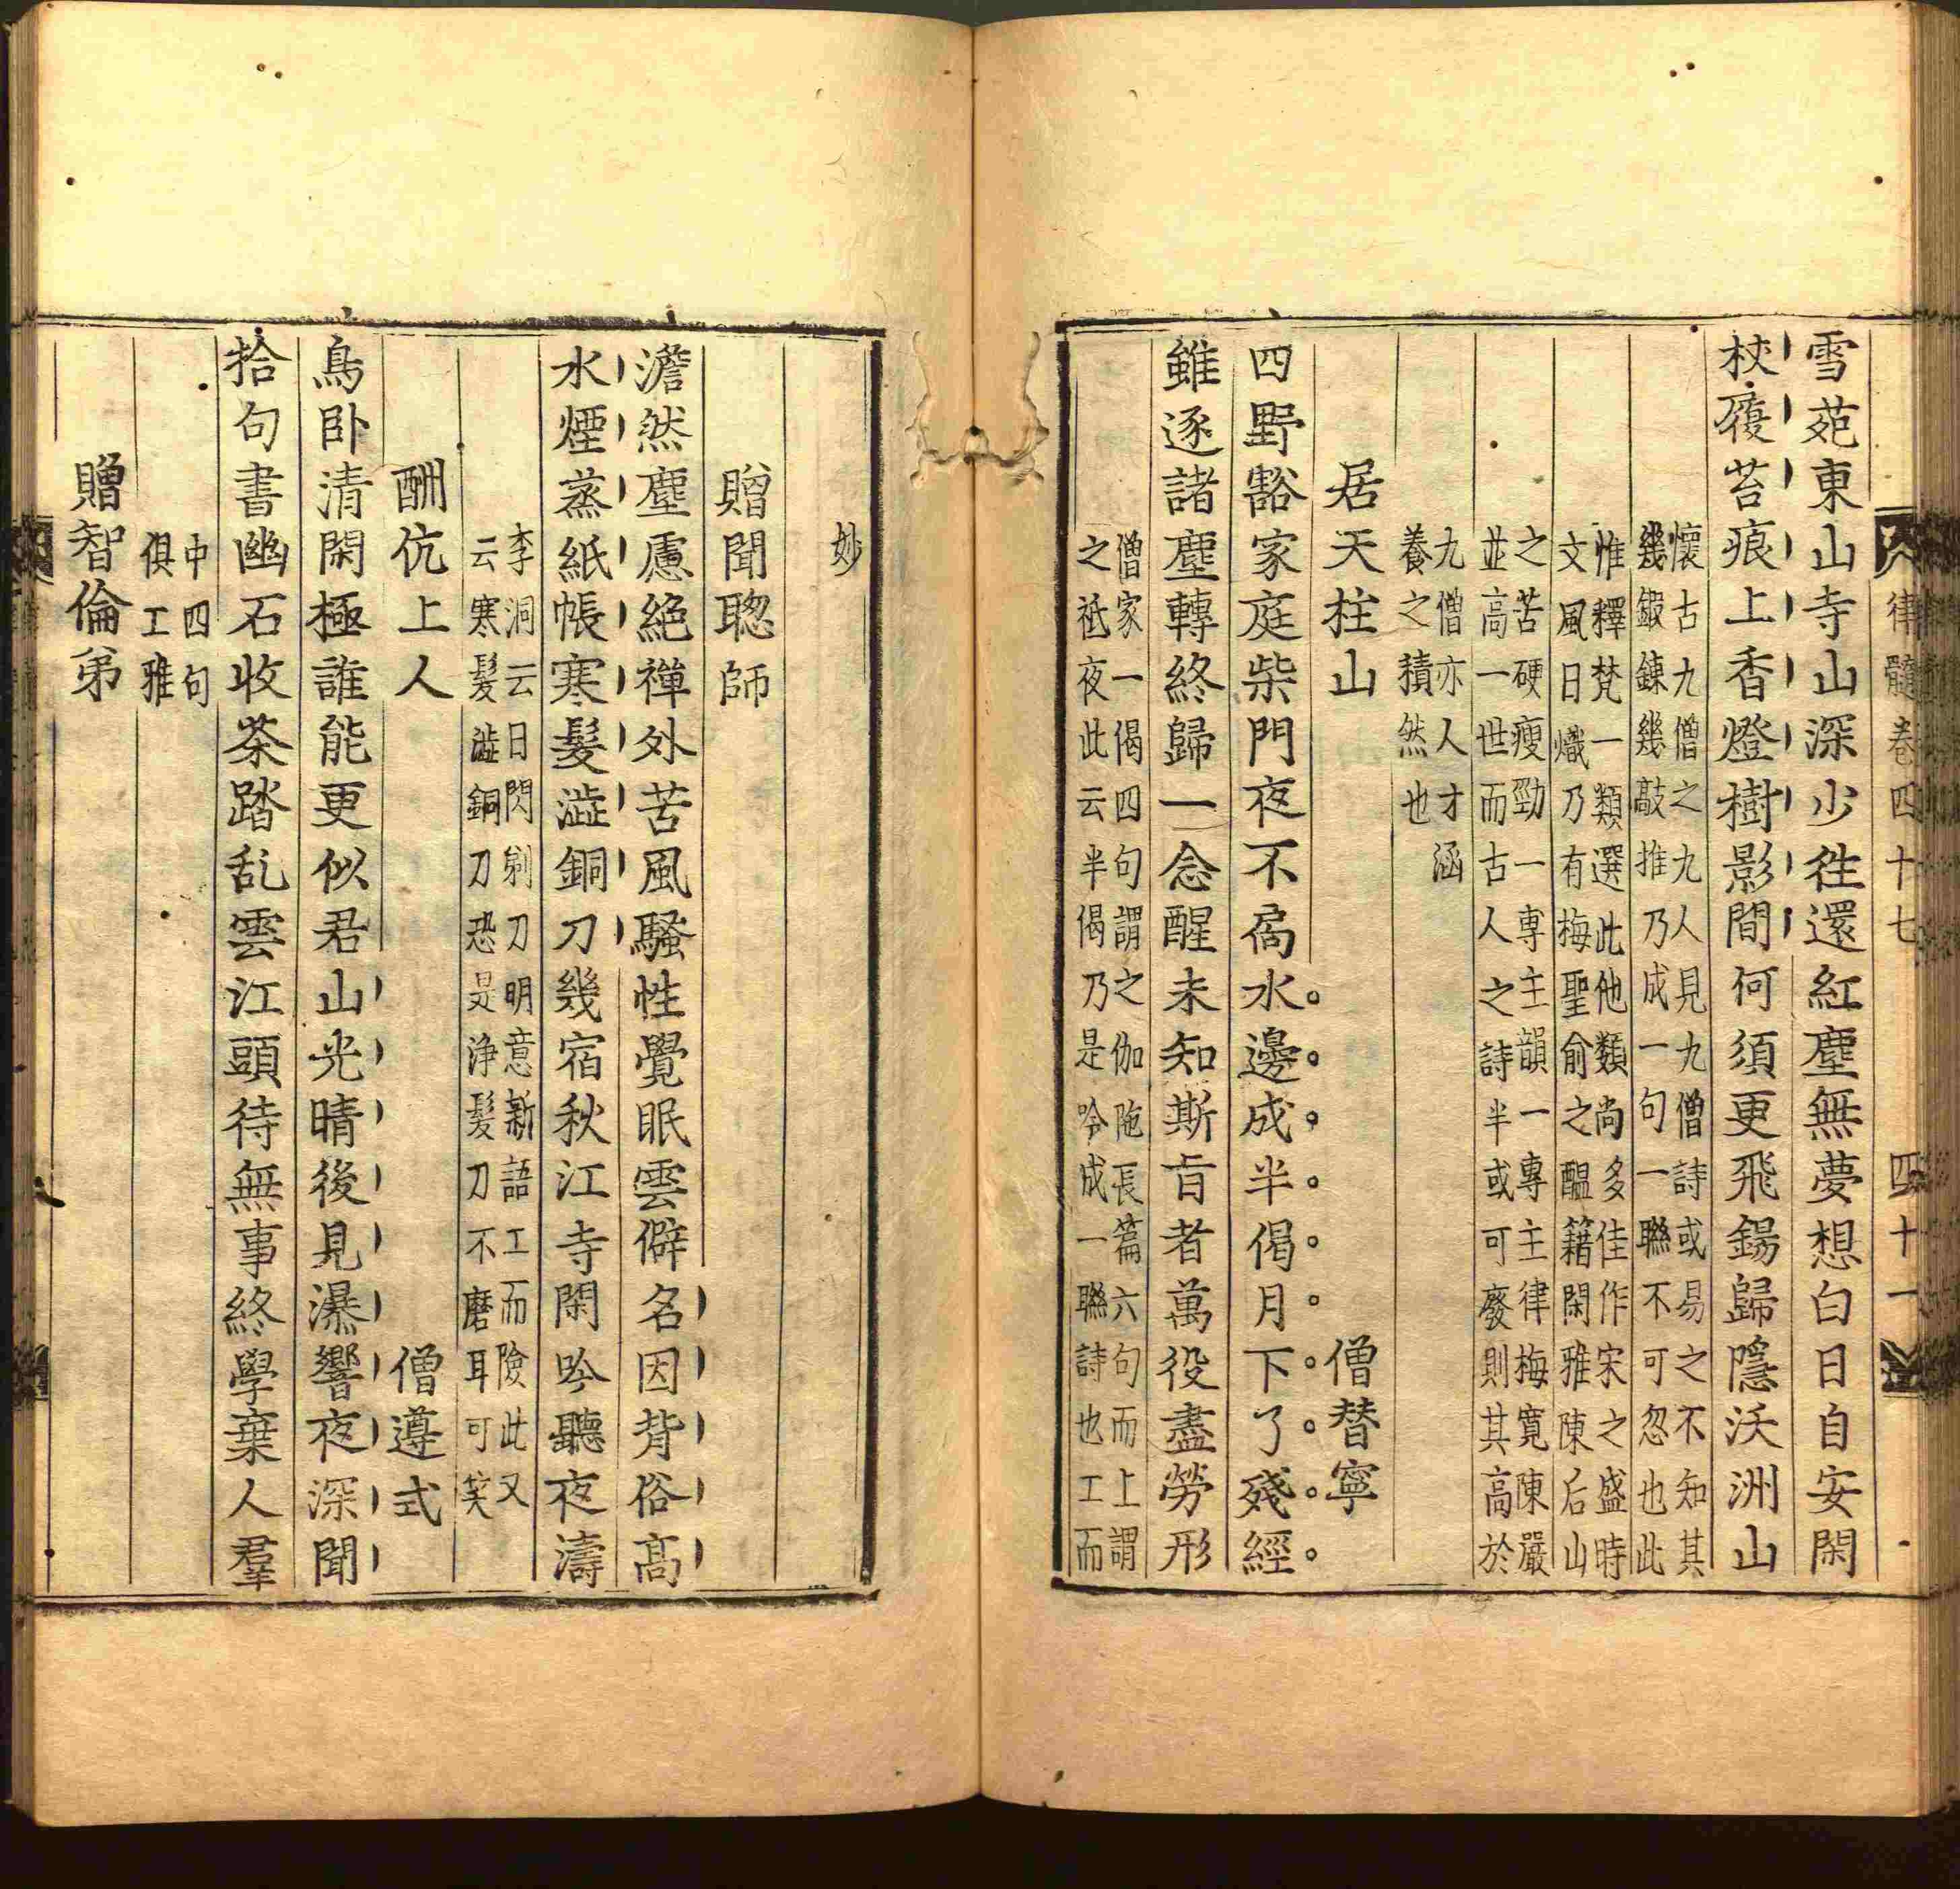 律髓卷四十七 四十一
雪苑東山寺山深少徃還紅塵無夢想白日自安閑
杖屨苔痕上香燈樹影間何須更飛錫歸隱沃洲山
懷古九僧之九人見九僧詩或易之不知其
幾鍜鍊幾敲推乃成一句一聯不可忽也此
惟釋梵一類選此他類尚多佳作宋之盛時
文風日熾乃有梅聖俞之醞籍閑雅陳后山
之苦硬瘦勁一專主韻一專主律梅寬陳嚴
並高一世而古人之詩半或可廢則其高於
九僧亦人才涵
養之積然也
居天柱山 僧替寧
四野豁家庭柴門夜不扃水邊成半偈月下了殘經
雖逐諸塵轉終歸一念醒未知斯旨者萬役盡勞形
僧家一偈四句謂之伽陁長篇六句而上謂
之祗夜此云半偈乃是吟成一聯詩也工而
妙
贈聞聦師
澹然塵慮絕禪外苦風騷性覺眠雲僻名因背俗高
水煙蒸紙帳寒髮澁銅刀幾宿秋江寺閑吟聽夜濤
李洞云日閃剃刀明意新語工而險此又
云寒髮澁銅刀恐是浄髮刀不磨耳可笑
酬伉上人 僧遵式
鳥卧清閑極誰能更似君山光晴後見瀑響夜深聞
拾句書幽石收茶踏乱雲江頭待無事終學棄人羣
中四句
俱工雅
贈智倫弟